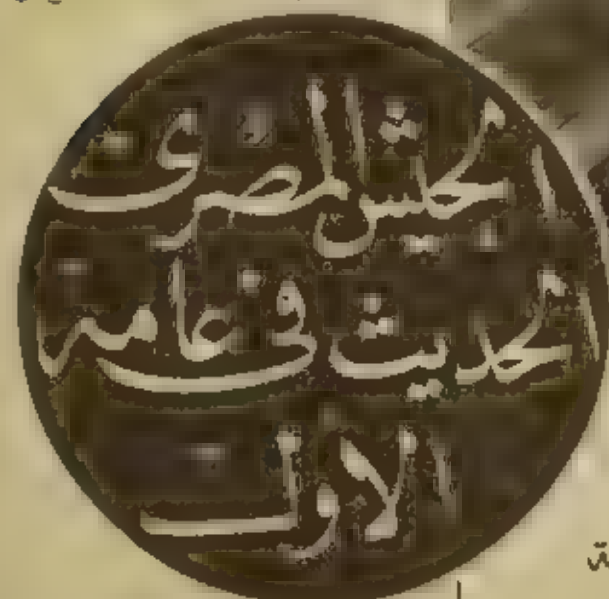 الجيش المصرى
الحديث فى عامه
الاول